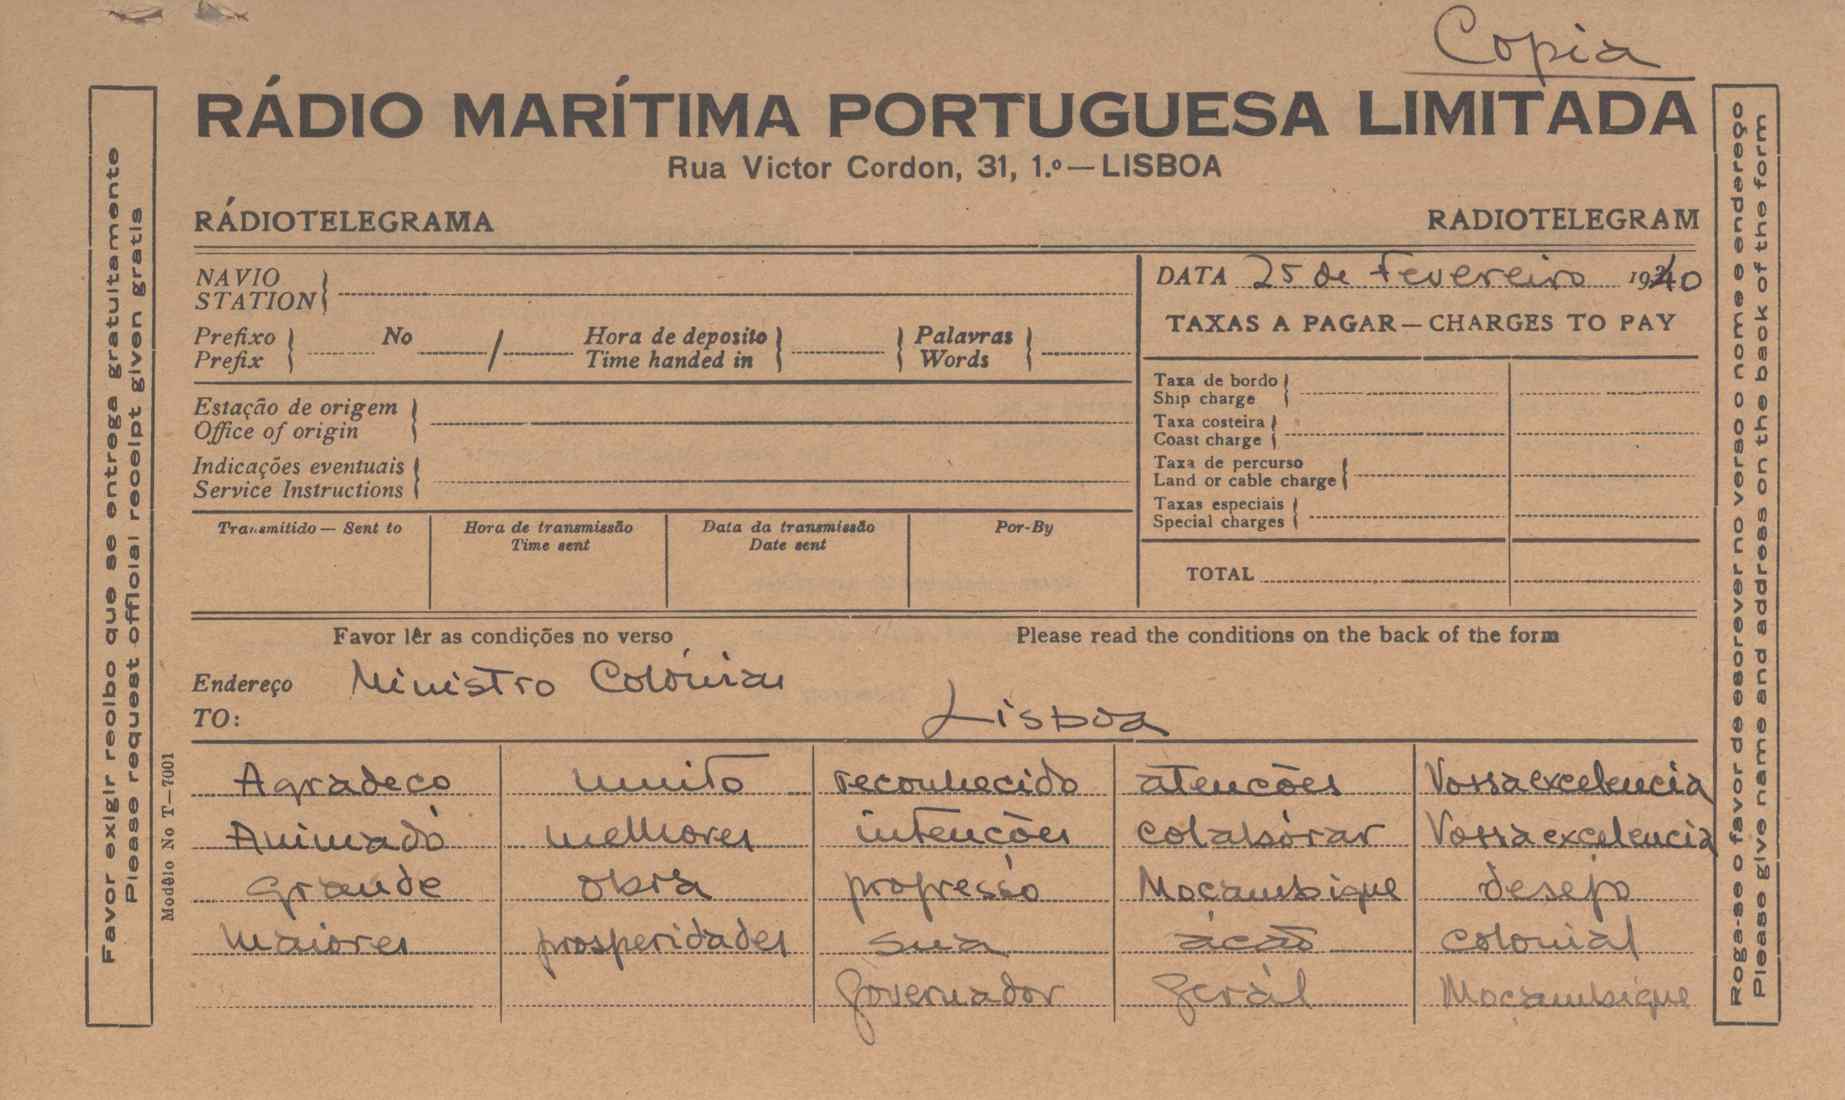 Copia
RÁDIO MARÍTIMA PORTUGUESA LIMITADA
Rua Victor Cordon, 31, 1.º — LISBOA
RÁDIOTELEGRAMA RADIOTELEGRAM
NAVIO
STATION
DATA 25 de Fevereiro 1940
TAXAS A PAGAR — CHARGES TO PAY
Prefixo No / Hora de deposito Palavras
Prefix Time handed in Words
Estação de origem
Office of origin
Indicações eventuais
Service Instructions
Taxa de bordo
Ship charge
Taxa costeira
Coast charge
Taxa de percurso
Land or cable charge
Taxas especiais
Special charges
TOTAL
Transmitido — Sent to
Hora de transmissão
Time sent
Data da transmissão
Date sent
Por-By
Favor lêr as condições no verso Please read the conditions on the back of the form
Endereço Ministro Colónias
TO: Lisboa
Agradeço muito reconhecido atenções Vossaexcelencia
Animado melhores intenções colabórar Vossaexcelencia
grande obra progresso Moçambique desejo
maiores prosperidades sua acão colonial
Governador Geral Moçambique
Favor exigir recibo que se entrega gratuitamente
Please request official receipt given gratis
Modêlo No T—7001
Roga-se o favor de escrever no verso o nome e endereço
Please give name and address on the back of the form